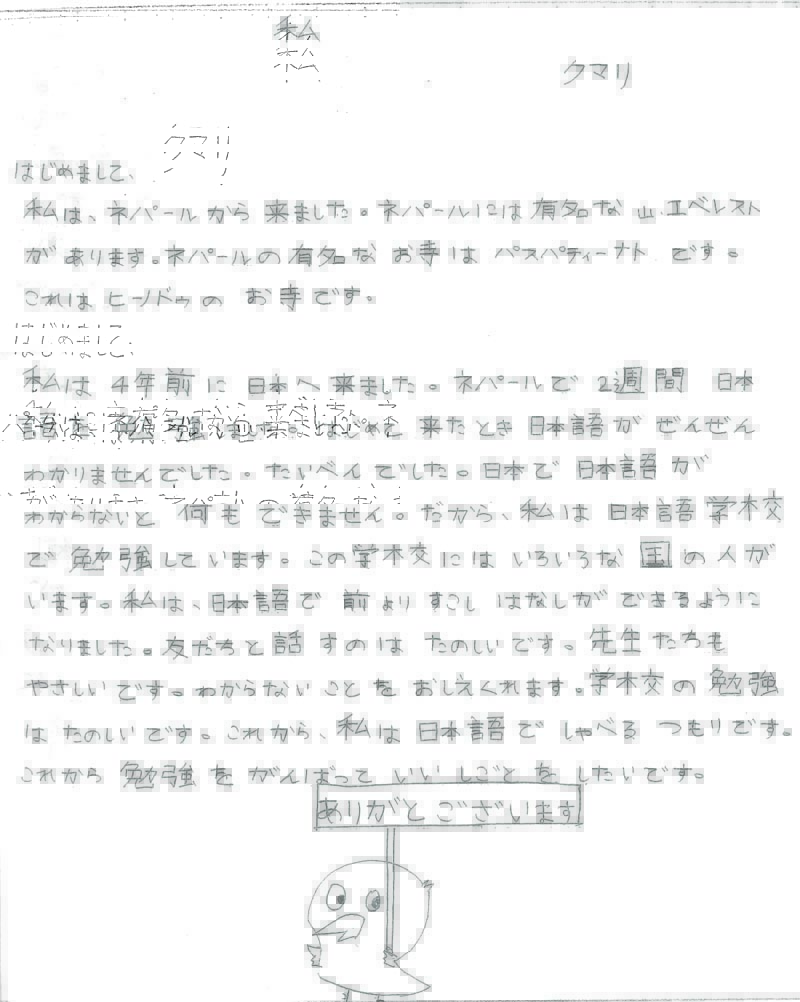 私
クマリ
はじめまして、
私は、ネパールから 来ました。ネパールには 有名な 山、エベレスト
が あります。ネパールの 有名な お寺は パスパティーナト です。
これは ヒンドゥの お寺です。
私は 4年前に 日本へ 来ました。ネパールで 2週間 日本
語を 勉強しました。はじめて 来たとき 日本語が ぜんぜん
わかりませんでした。たいへんでした。日本で 日本語が
わからないと 何も できません。だから、私は 日本語学校
で 勉強しています。この学校には いろいろな 国の人が
います。私は、日本語で 前より すこし はなしが できるように
なりました。友だちと 話すのは たのしいです。先生たちも
やさしいです。わからない ことを おしえくれます。学校の 勉強
は たのしいです。これから、私は 日本語で しゃべる つもりです。
これから 勉強を がんばって いい しごとを したいです。
ありがとございます